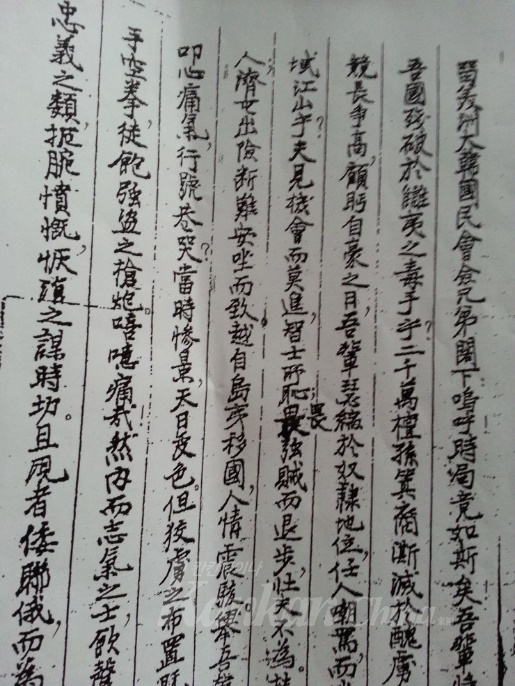 留美洲大韓國民會僉元弟閣下嗚呼時局竟如斯矣吾輩
吾國残破於讎夷之毒手乎?二千萬檀孫箕裔澌滅於醜虜
競長爭高,顧眄自豪之日,吾輩瑟縮於奴隸地位,任人嘲罵而
域江山乎?夫見機會而莫進,智士所恥,畏強賊而退步,壯夫不為。
人濟女出險斷難安坐而致越自島夷移國,人情震駭,舉吾
叩心痛氣,行號巷哭?當時慘景,天日変色。但狡虜之布置
手空拳,徒飽強盜之槍炮。嘻噫痛哉然内而志氣之士,飲聲
忠義之類,扼腕憤慨,恢復之謀時切。且現者倭聯俄而為